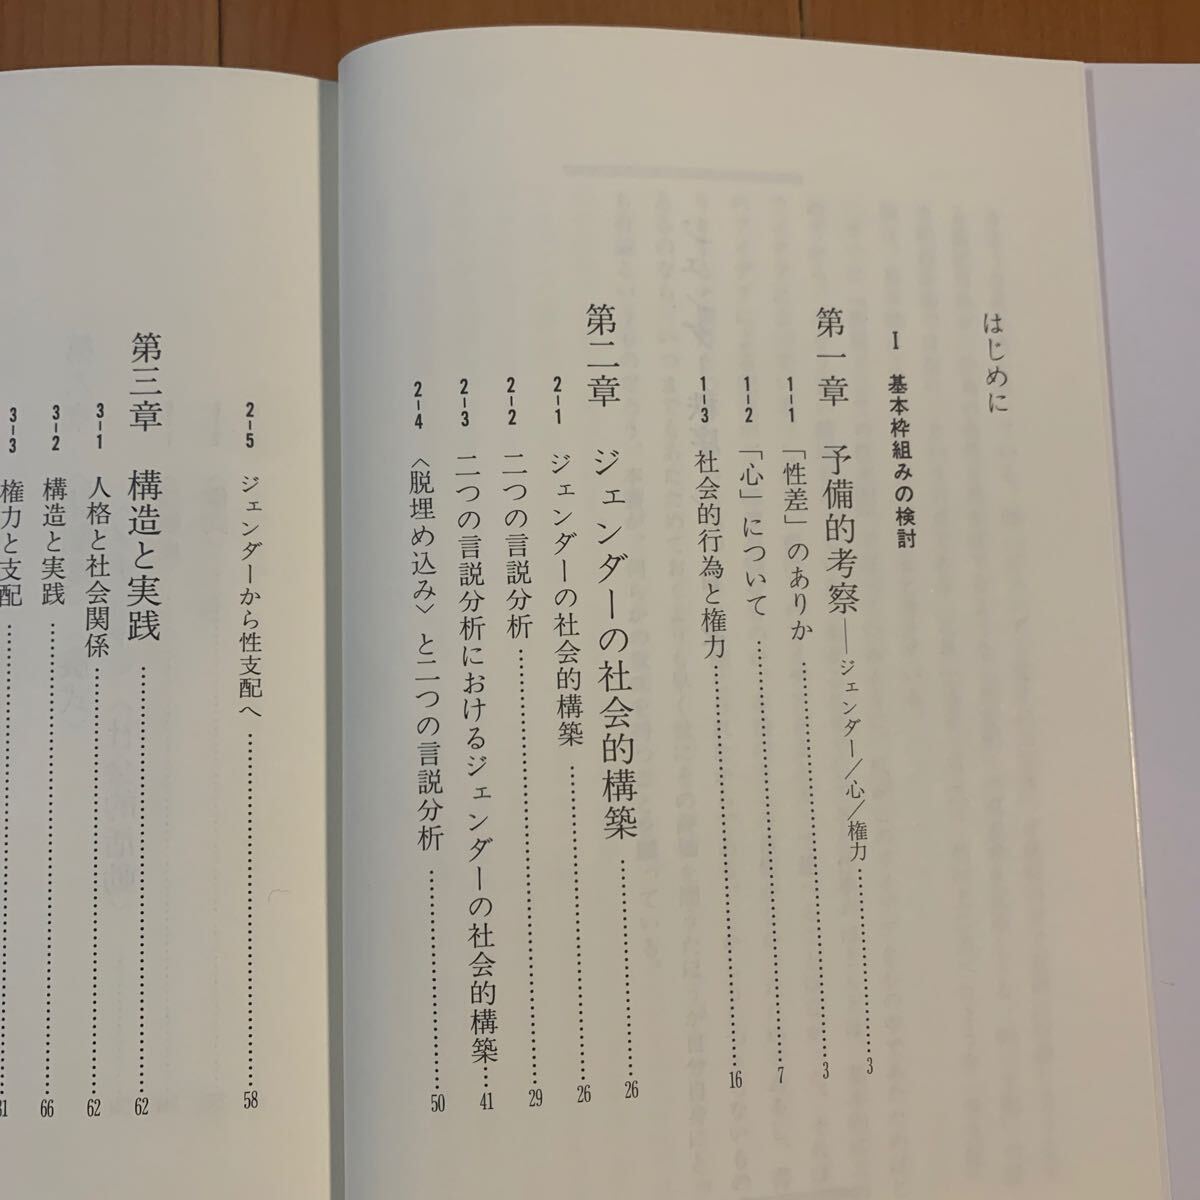 はじめに
Ⅰ 基本枠組みの検討
第一章 予備的考察――ジェンダー／心／権力…………3
1-1 「性差」のありか…………3
1-2 「心」について…………7
1-3 社会的行為と権力…………16
第二章 ジェンダーの社会的構築…………26
2-1 ジェンダーの社会的構築…………26
2-2 二つの言説分析…………29
2-3 二つの言説分析におけるジェンダーの社会的構築…41
2-4 〈脱埋め込み〉と二つの言説分析…………50
2-5 ジェンダーから性支配へ…………58
第三章 構造と実践…………62
3-1 人格と社会関係…………62
3-2 構造と実践…………66
3-3 権力と支配…………